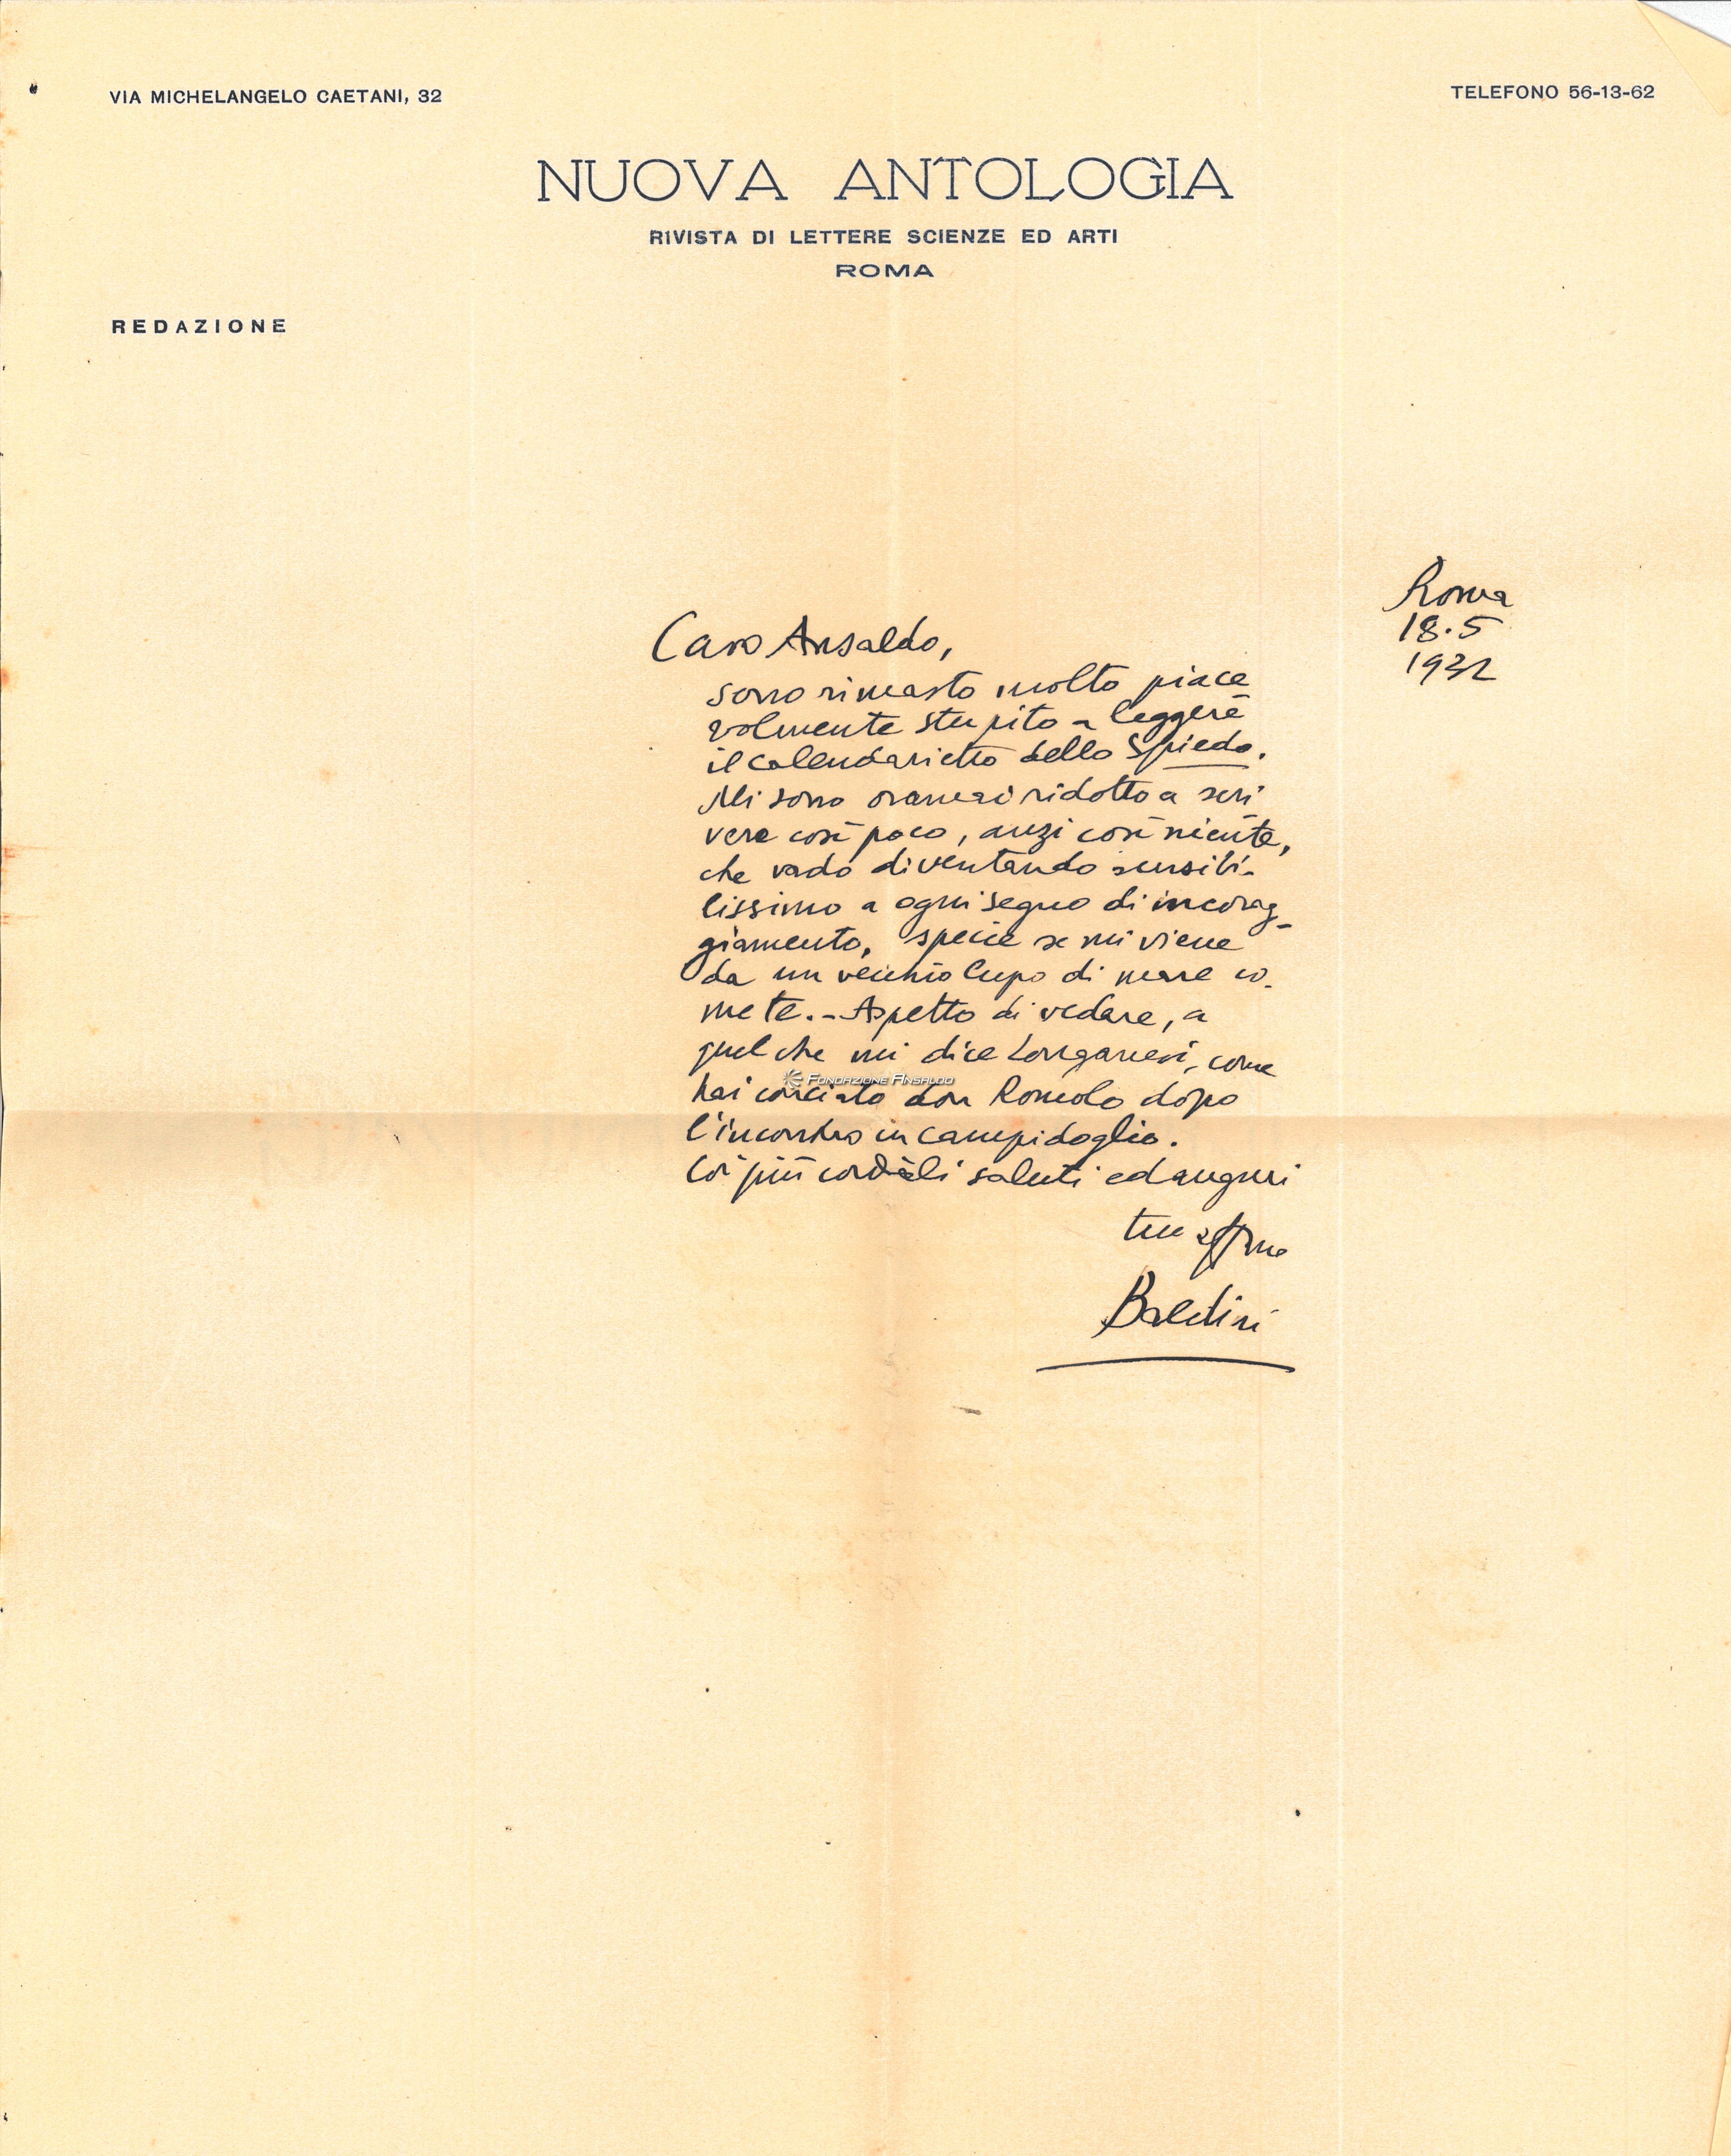 VIA MICHELANGELO CAETANI, 32
TELEFONO 56-13-62
NUOVA ANTOLOGIA
RIVISTA DI LETTERE SCIENZE ED ARTI
ROMA
REDAZIONE
Roma
18.5
1932
Caro Ansaldo,
sono rimasto molto piace
volmente stupito a leggere
il calendarietto dello Spiedo.
Mi sono oramai ridotto a scri
vere così poco, anzi così niente,
che vado diventando sensibi-
lissimo a ogni segno di incorag-
giamento, specie se mi viene
da un vecchio lupo di mare co-
me te. - Aspetto di vedere, a
quel che mi dice Longanesi, come
hai conciato don Romolo dopo
FONDAZIONE ANSALDO
l'incontro in Campidoglio.
Coi più cordiali saluti ed auguri
tuo affmo
Baldini